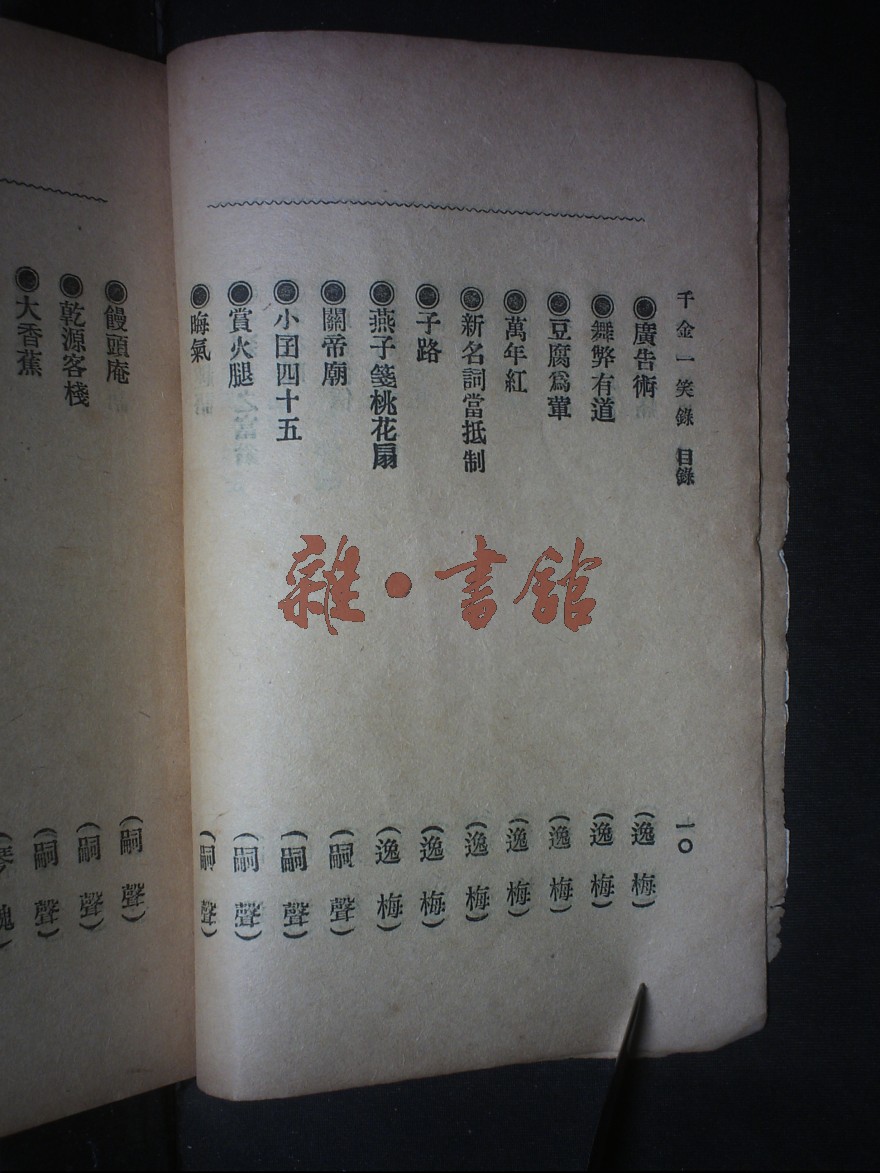 千金一笑錄 目錄 一〇
◉廣告術 (逸梅)
◉舞弊有道 (逸梅)
◉豆腐爲葷 (逸梅)
◉萬年紅 (逸梅)
◉新名詞當抵制 (逸梅)
◉子路 (逸梅)
◉燕子箋桃花扇 (逸梅)
◉關帝廟 (嗣聲)
◉小囝四十五 (嗣聲)
◉賞火腿 (嗣聲)
◉晦氣 (嗣聲)
◉饅頭庵 (嗣聲)
◉乾源客棧 (嗣聲)
(嗣聲)
◉大香蕉
雜·書館